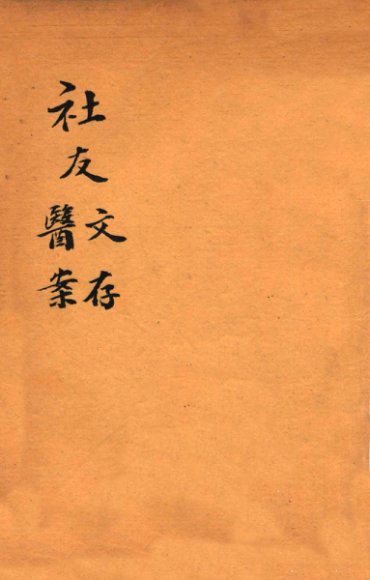 社友
文存
醫案